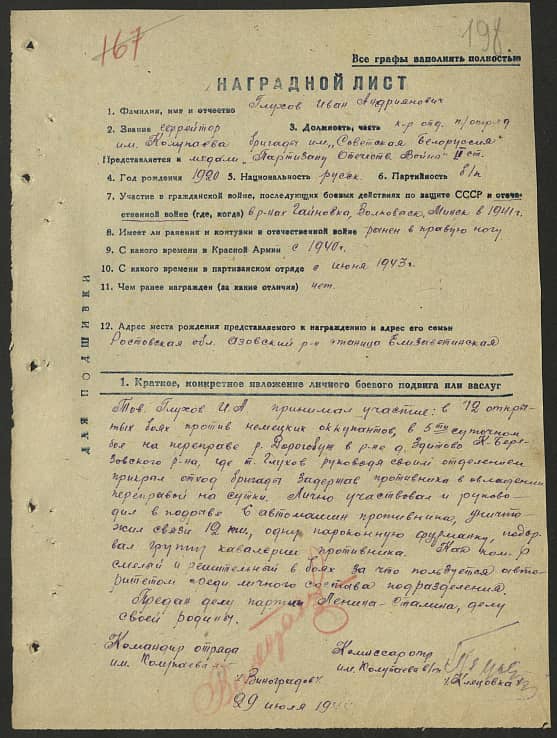 167
198.
Все графы заполнить полностью
НАГРАДНОЙ ЛИСТ
1. Фамилия, имя и отчество Глухов Иван Андриянович
2. Звание ефрейтор 3. Должность, часть к-р отд. п/отряд
им. Колупаева бригады им. „Советская Белоруссия"
Представляется к медали „Партизану Отечеств. Войны" II ст.
4. Год рождения 1920 5. Национальность русск. 6. Партийность б/п
7. Участие в гражданской войне, последующих боевых действиях по защите СССР и отече-
ственной войне (где, когда) в р-нах Гайновка, Волковыск, Минск в 1941 г.
8. Имеет ли ранения и контузии в отечественной войне ранен в правую ногу
9. С какого времени в Красной Армии с 1940 г.
10. С какого времени в партизанском отряде с июня 1943 г.
11. Чем ранее награжден (за какие отличия) нет.
12. Адрес места рождения представляемого к награждению и адрес его семьи
Ростовская обл. Азовский р-н станица Елизаветинская
ДЛЯ ПОДШИВКИ
1. Краткое, конкретное изложение личного боевого подвига или заслуг
Тов. Глухов И.А. принимал участие: в 12 откры-
тых боях против немецких оккупантов, в 5ти суточном
бое на переправе р. Дорогобуж в р-не д. Здитово К. Бере-
зовского р-на, где т. Глухов руководя своим отделением
прикрал отход бригады задержав противника в овладении
переправой на сутки. Лично участвовал и руково-
дил в подрыве 6 автомашин противника, уничто-
жил связи 12 км, одну пароконную фурманку, подор-
вал группу кавалерии противника. Как ком.
смелый и решительный в боях за что пользуется авто-
ритетом среди личного состава подразделения.
Предан делу партии Ленина-Сталина, делу
своей родины.
Командир отряда Комиссар отр
им. Колупаева им. Колупаева
/Виноградов/ /Клецовка/
29 июля 194